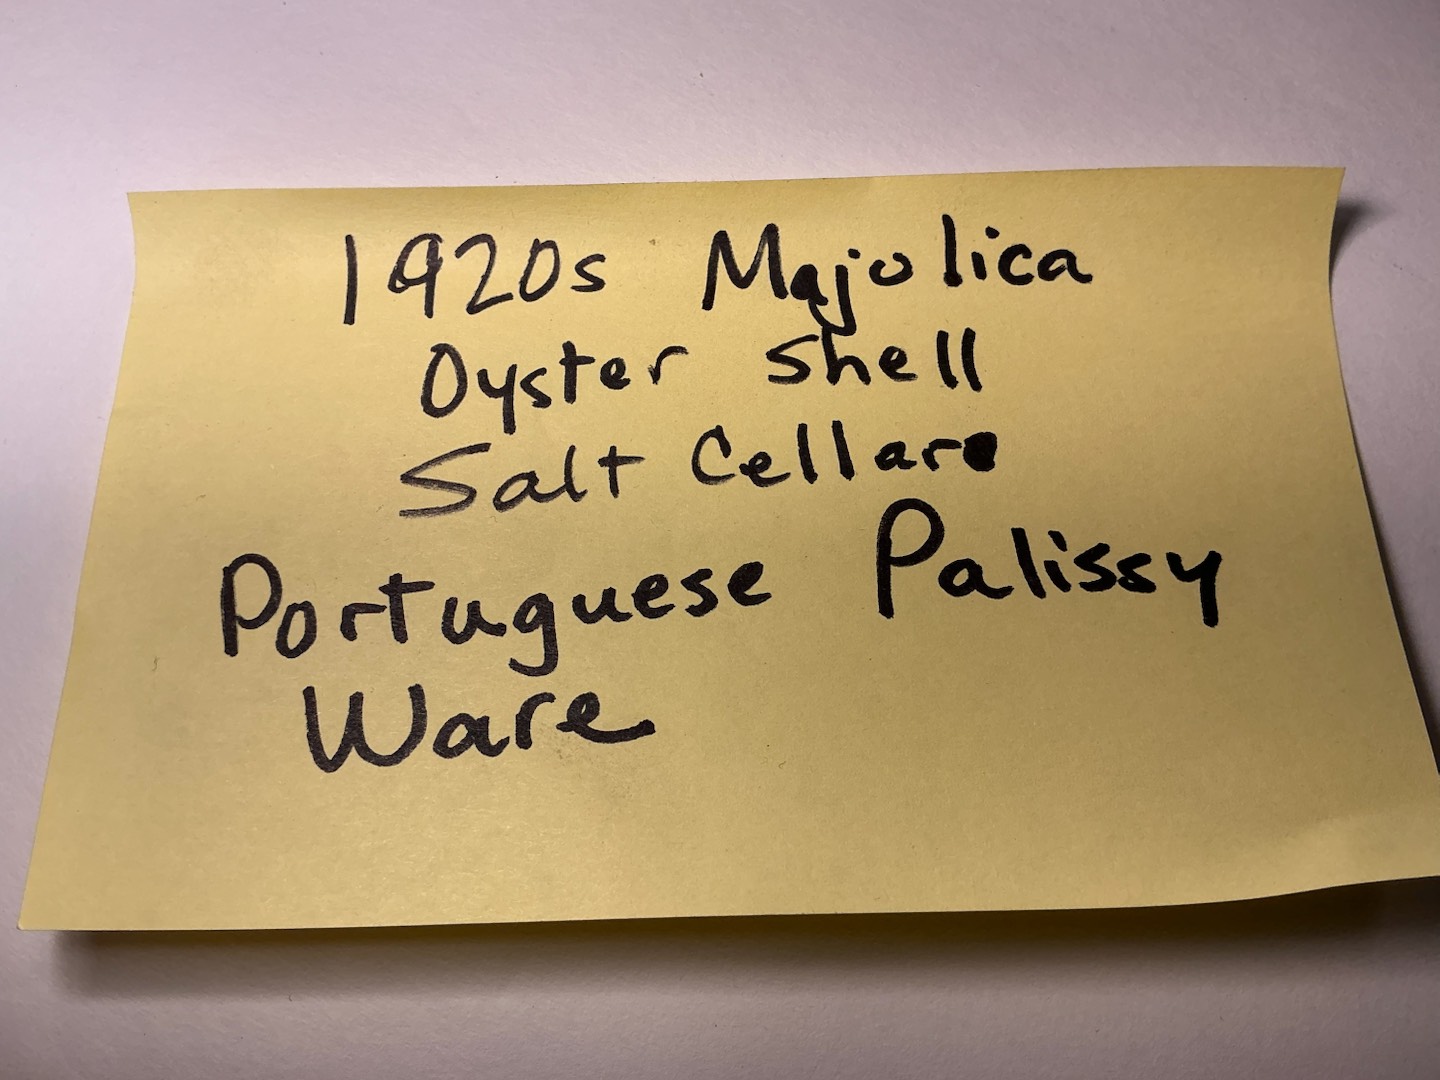 1920s Majolica
Oyster Shell
Salt Cellar
Portuguese Palissy
Ware